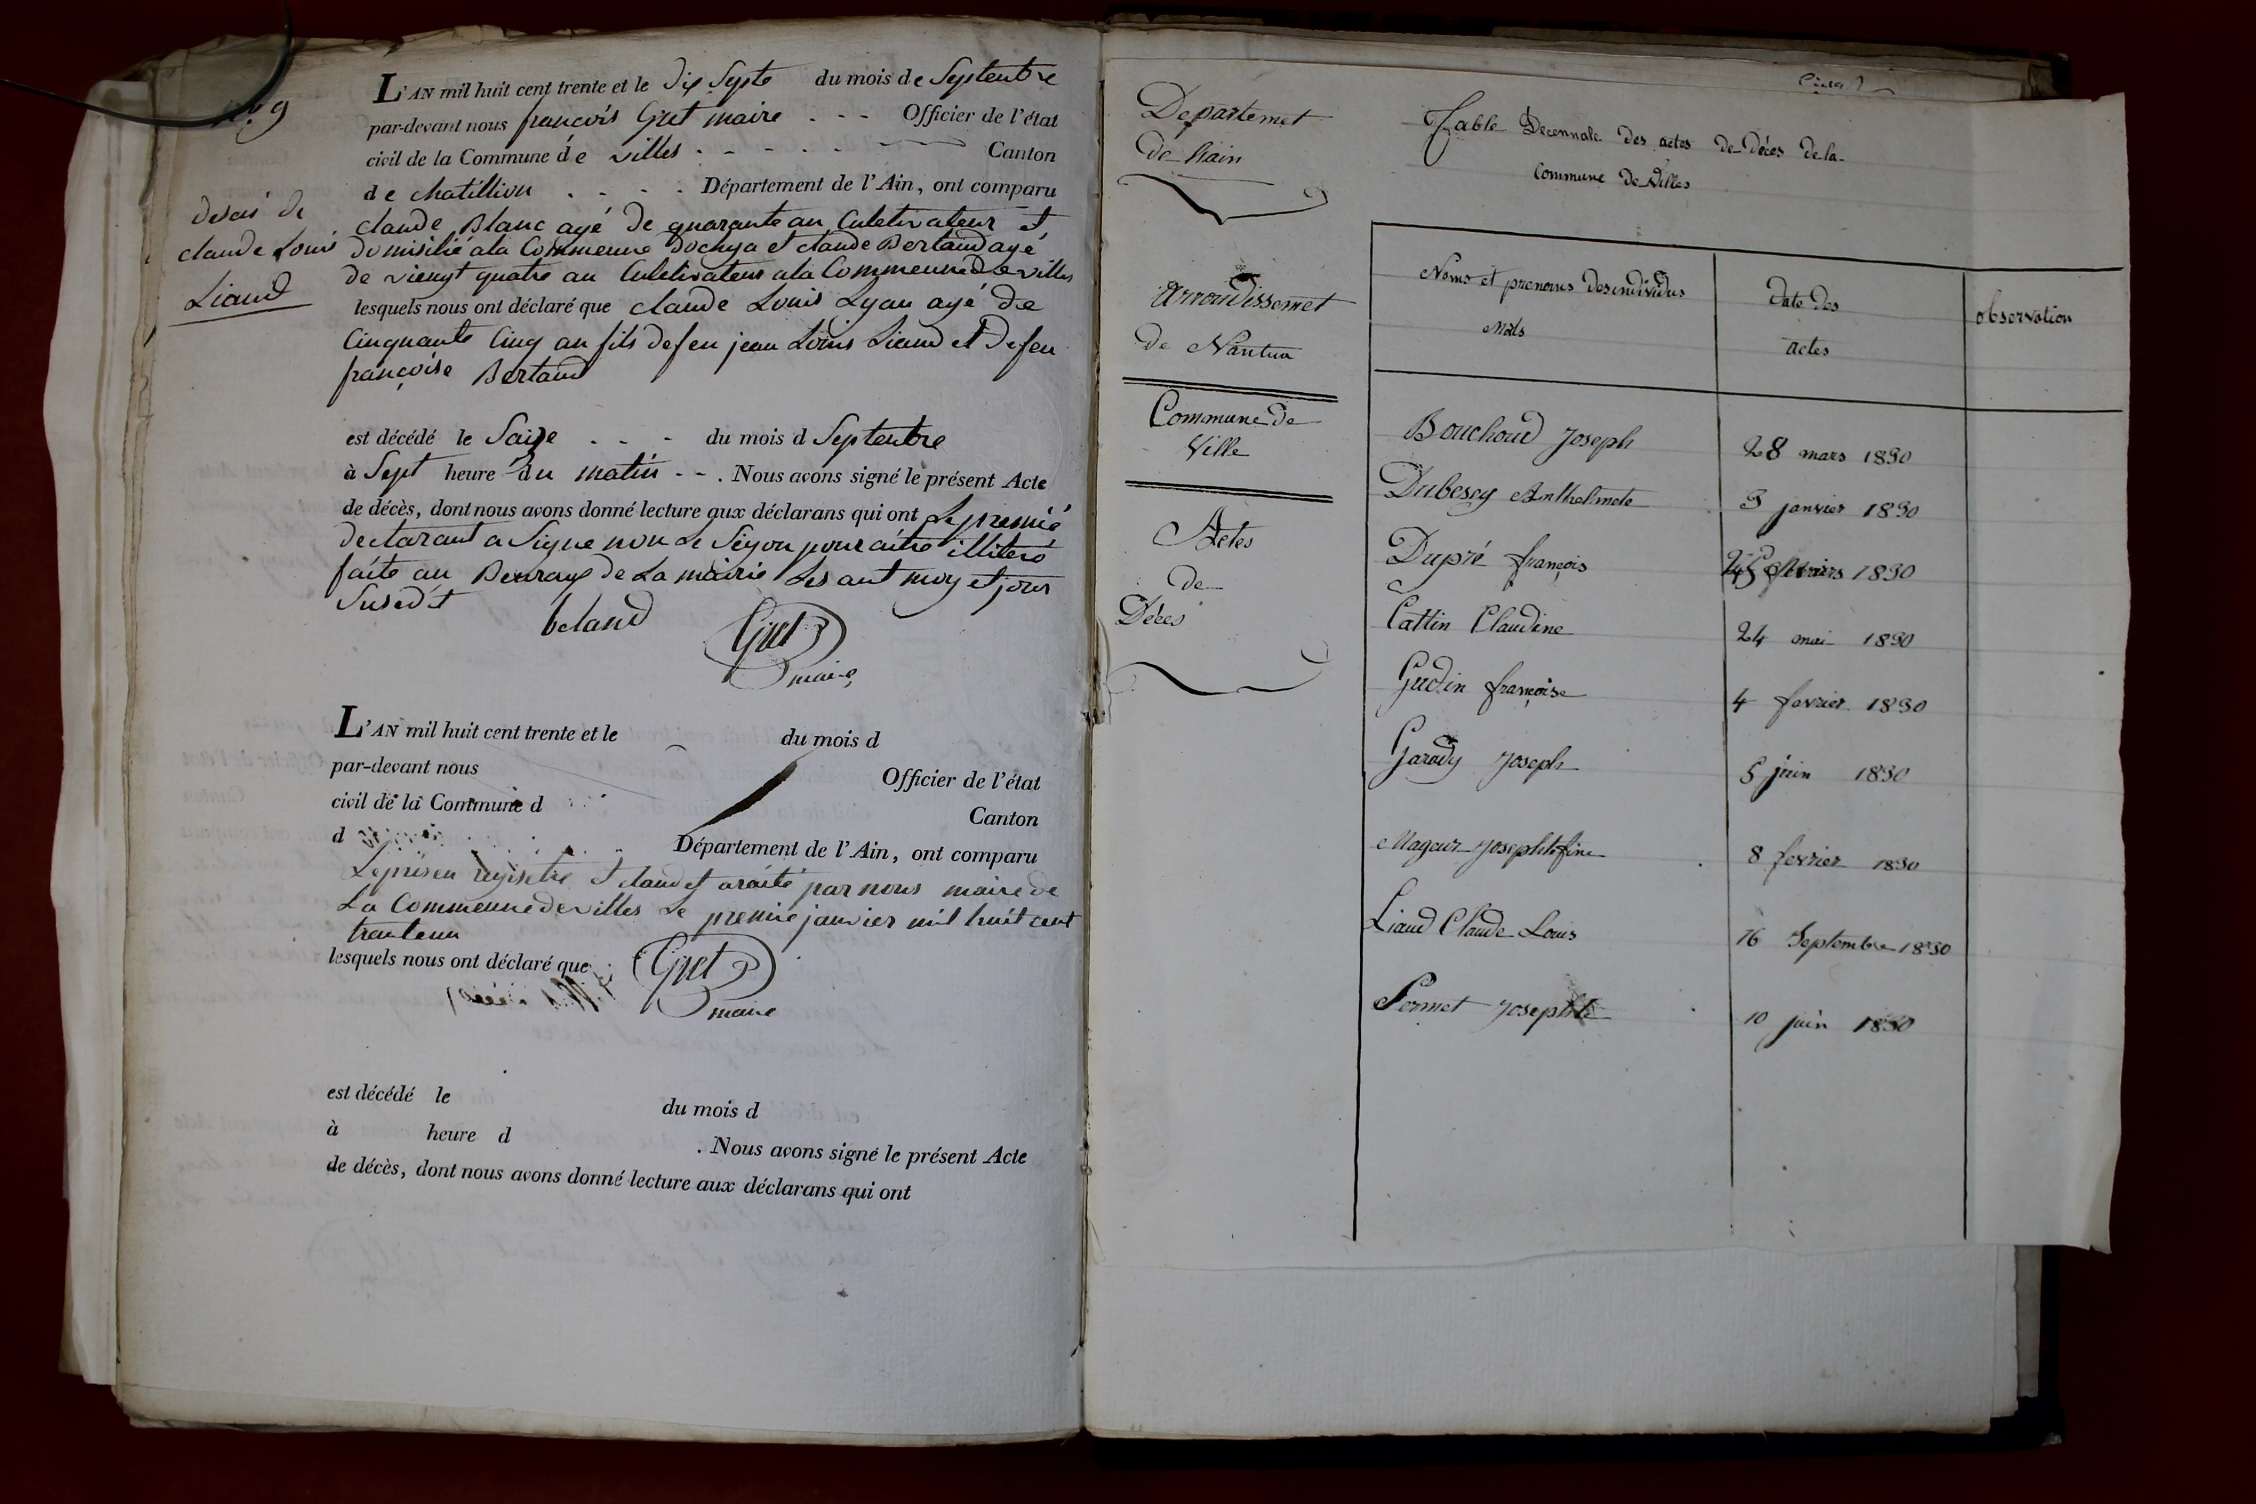 N.° 9
L'AN mil huit cent trente et le dix Septe du mois de Septentbre
par-devant nous françois Gret maire - - - Officier de l'état
civil de la Commune de villes - - - - Canton
de chatillion - - - Département de l'Ain, ont comparu
claude Blanc agé de quarante an Culetivateur et
domisilié a la Commeune dochya et claude Bertand agé
de viengt quatre an Culetivateur a la Commeune de villes
lesquels nous ont déclaré que claude Louis Lyau agé de
Cinquante Cinq an fils de feu jean Louis Liaud et de feu
françoise Bertaud
desais de
claude Louis
Liaud
est décédé le Saize - - - du mois d Septentbre
à Sept heure du matin - - . Nous avons signé le présent Acte
de décès, dont nous avons donné lecture aux déclarans qui ont Le premié
declarant a Signe non Le Segon pour aitre illiteré
faite au Beuraux de La mairie Les ant moy et jour
Susedit
Gret
maire
L'AN mil huit cent trente et le du mois d
par-devant nous Officier de l'état
civil de la Commune d Canton
d Département de l'Ain, ont comparu
Le présen regisetre et par nous maire de
La Commeune de villes Le premie janvier mil huit cent
lesquels nous ont déclaré que
Gret
maire
est décédé le du mois d
à heure d . Nous avons signé le présent Acte
de décès, dont nous avons donné lecture aux déclarans qui ont
Departemet
de Lain
Arrondissemet
de Nantua
Commune de
Ville
Actes
de
Déces
Table Decennale des actes de Déces de la
Commune de Villes
Noms et prenoms des individus Date des observation
actes
Bouchoud Joseph 28 mars 1830
Dubesey Anthelmete 3 janvier 1830
Dupré françois 1830
Cattin Claudine 24 mai 1830
Gudin françoise 4 fevrier 1830
Garady Joseph 5 juin 1830
8 fevrier 1830
Liaud Claude Louis 16 Septembre 1830
Permet Josephte 10 juin 1830